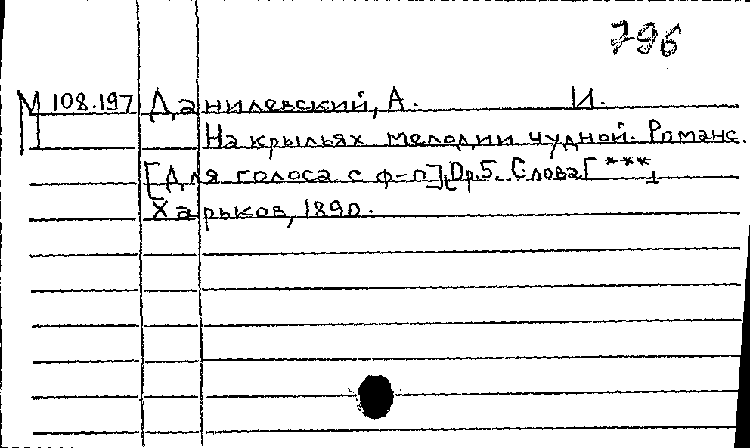 796
М 108.197 Данилевский, А. И.
На крыльях мелодии чудной. Романс.
[Для голоса с ф-п] Ор. 5. Слова[***]
Харьков, 1890.